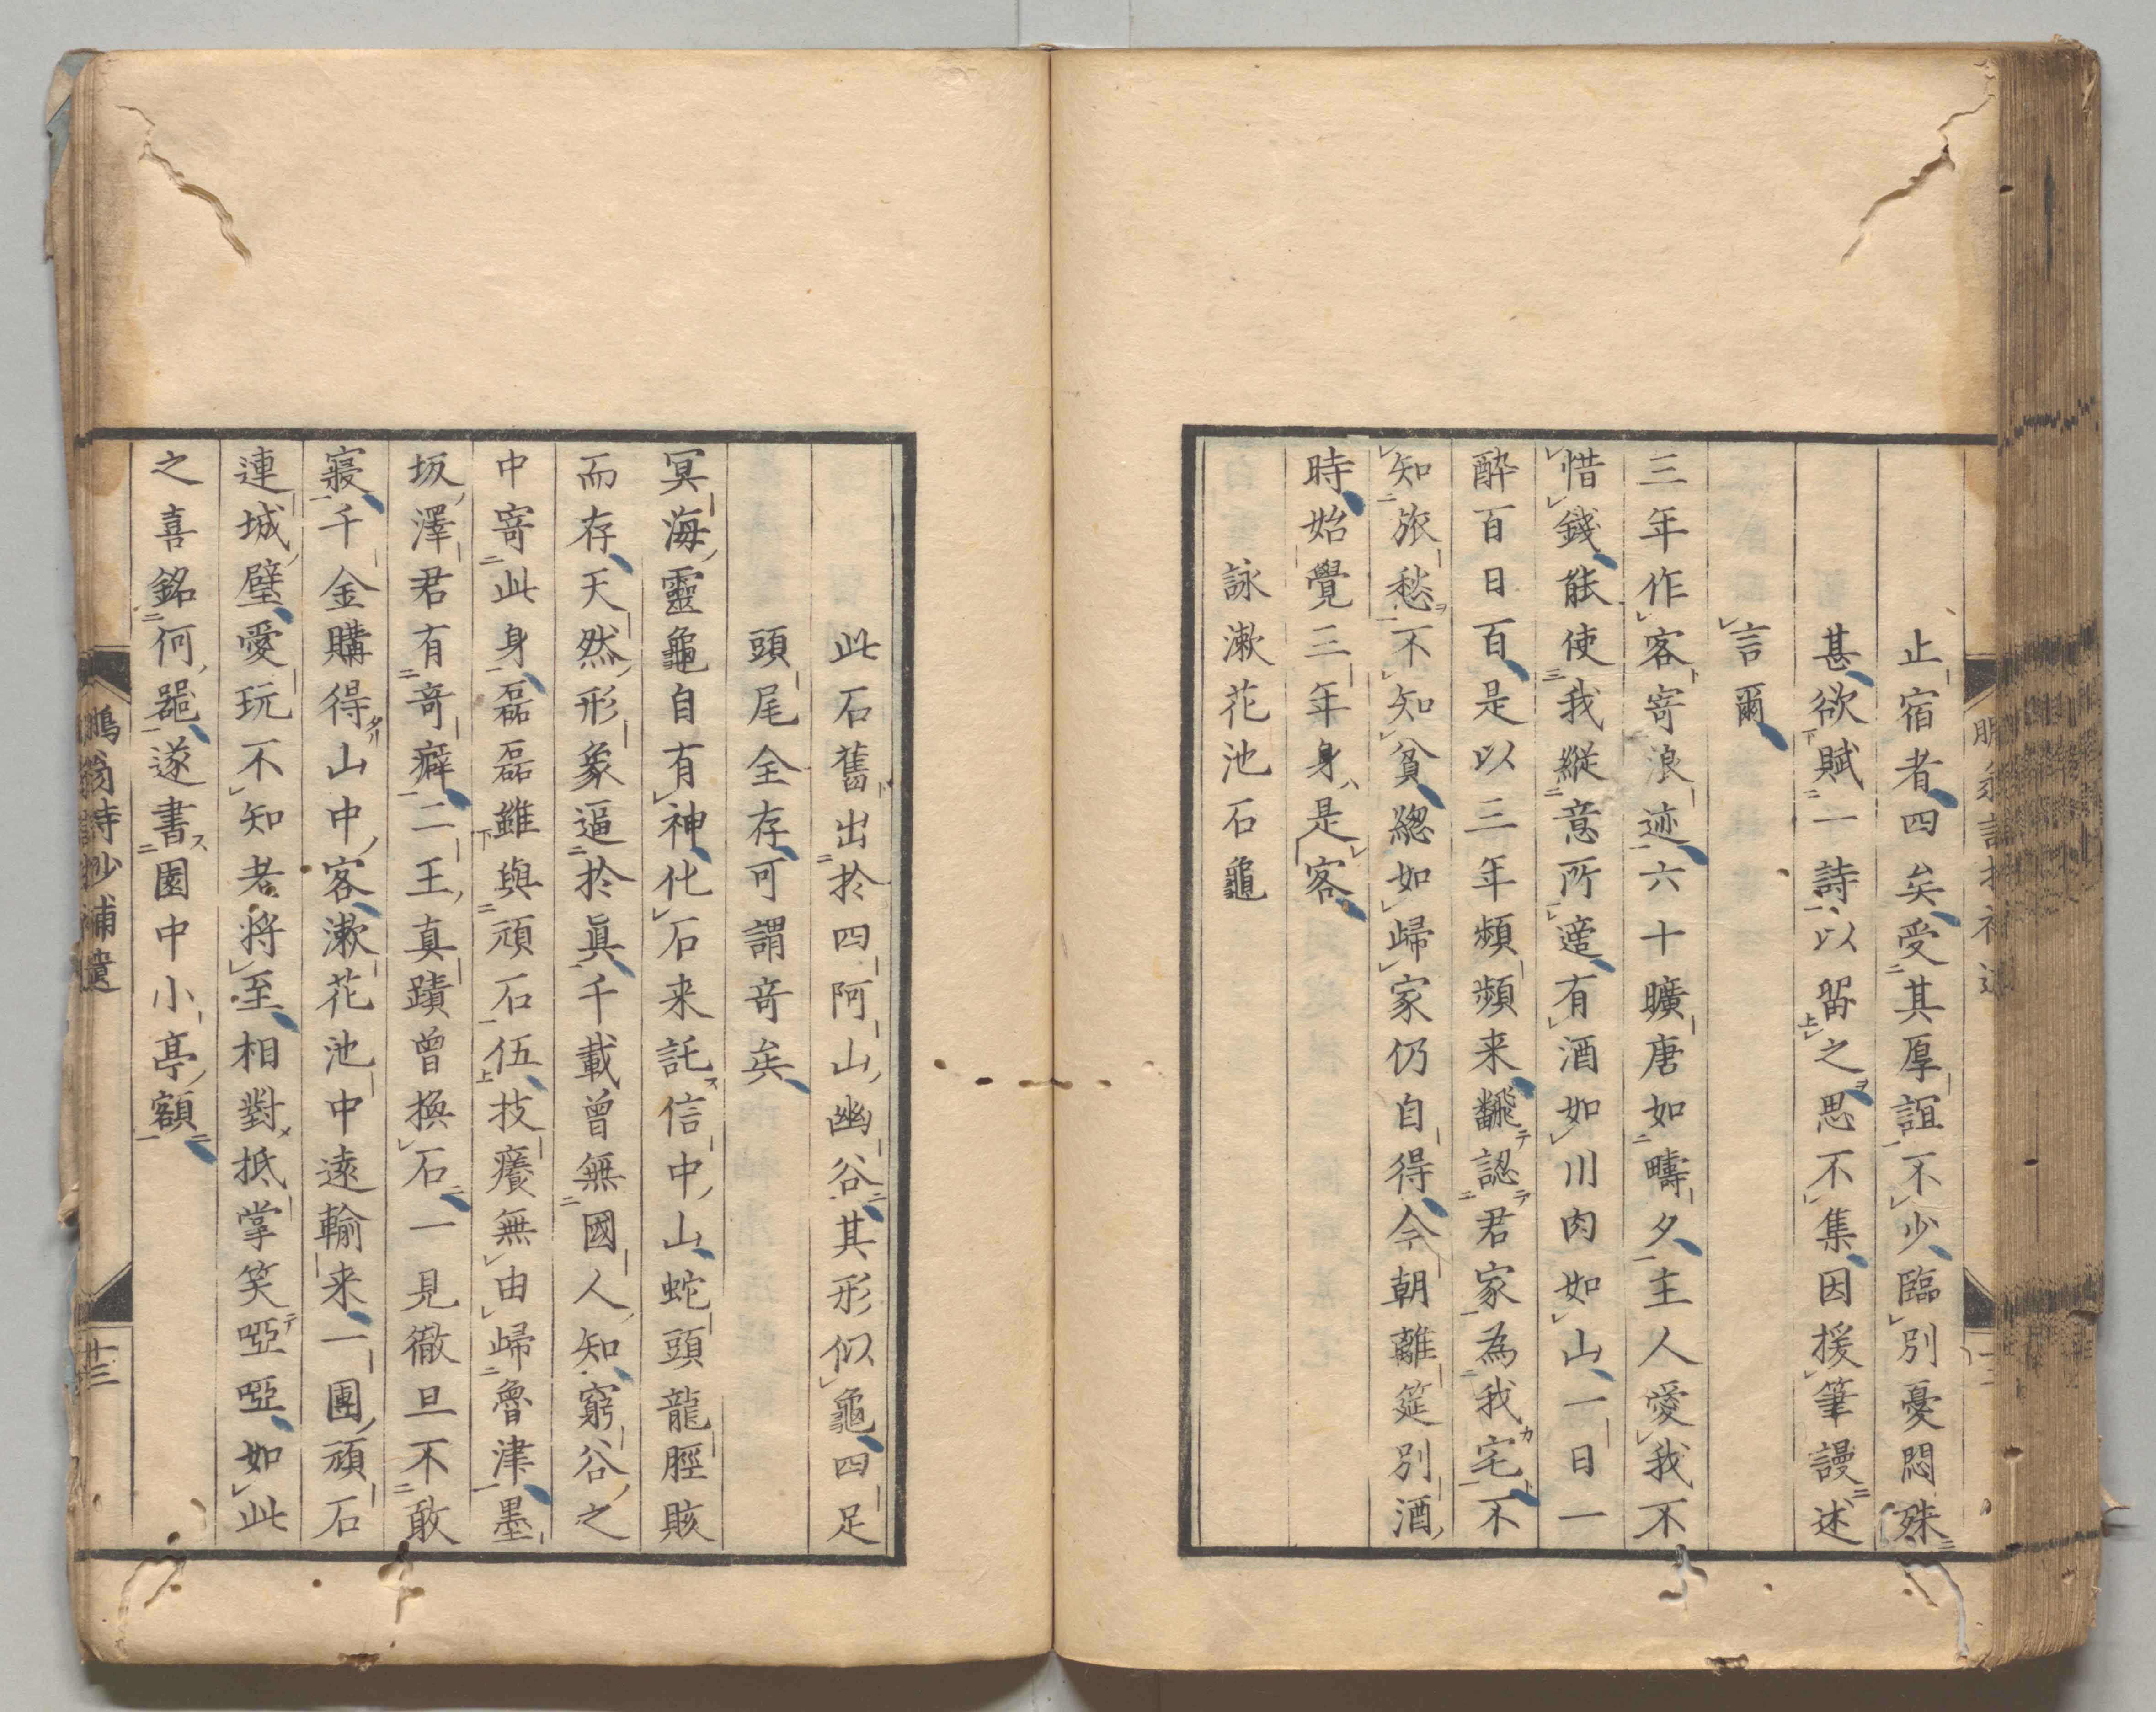 止宿者四矣受其厚誼不少臨別憂悶殊
甚欲賦一詩以留之思不集因援筆謾述
言爾
三年作客寄浪迹六十曠唐如疇夕主人愛我不
惜錢能使我縱意所適有酒如川肉如山一日一
酔百日百是以三年頻頻来飜認君家為我宅不
知旅愁不知貧總如歸家仍自得今朝離筵別酒
時始覺三年身是客
詠漱花池石龜
此石舊出於四阿山幽谷其形似龜四足
頭尾全存可謂竒矣
冥海靈龜自有神化石来託信中山蛇頭龍脛賅
而存天然形象逼於眞千載曾無國人知窮谷之
中寄此身磊磊雖與頑石伍技癢無由歸魯津墨
坂澤君有竒癖二王真蹟曾換石一見徹旦不敢
寢千金購得山中客漱花池中遠輸来一團頑石
連城璧愛玩不知老将至相對抵掌笑啞啞如此
之喜銘何器遂書園中小亭額
鵬翁詩抄補遺
十三